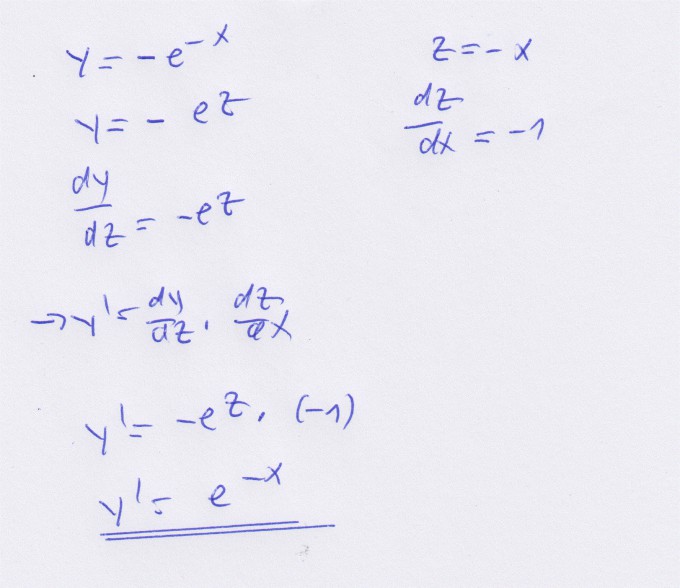 y = -e^{-x}
z = -x
y = - e^{z}
dz/dx = -1
dy/dz = -e^{z}
→ y' = dy/dz . dz/dx
y' = -e^{z} . (-1)
y' = e^{-x}